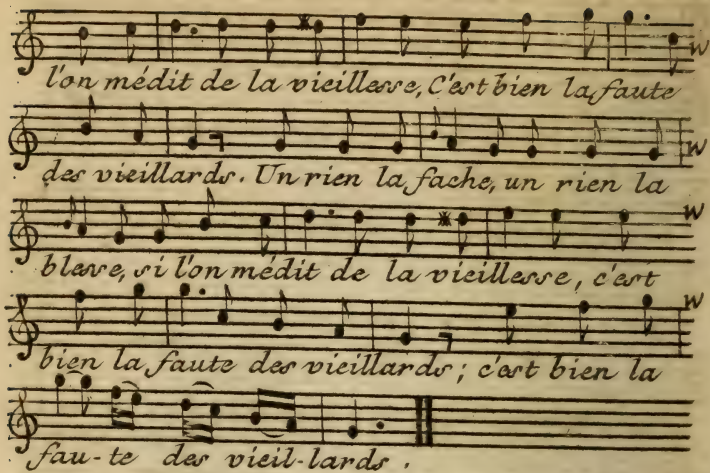 l'on médit de la vieillesse, C'est bien la faute
des vieillards. Un rien la fache, un rien la
blesse, si l'on médit de la vieillesse, c'est
bien la faute des vieillards; c'est bien la
fau-te des vieil-lards.